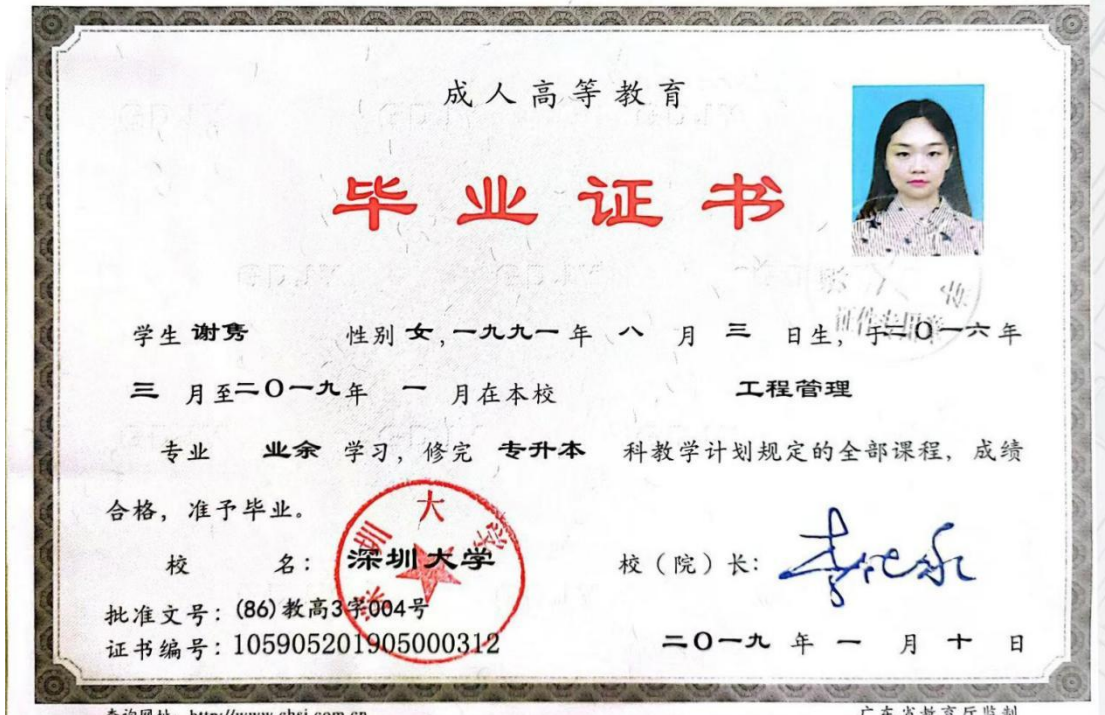 成人高等教育
毕业证书
学生 谢隽 性别 女, 一九九一 年 八 月 三 日生, 于二〇一六年
三 月至二〇一九年 一 月在本校 工程管理
专业 业余 学习, 修完 专升本 科教学计划规定的全部课程, 成绩
合格, 准予毕业。
校 名: 深圳大学 校(院)长:
批准文号: (86)教高3字004号
证书编号: 105905201905000312 二〇一九 年 一 月 十 日
查询网址: http://www.chsi.com.cn 广东省教育厅监制
深圳大学
证件专用章